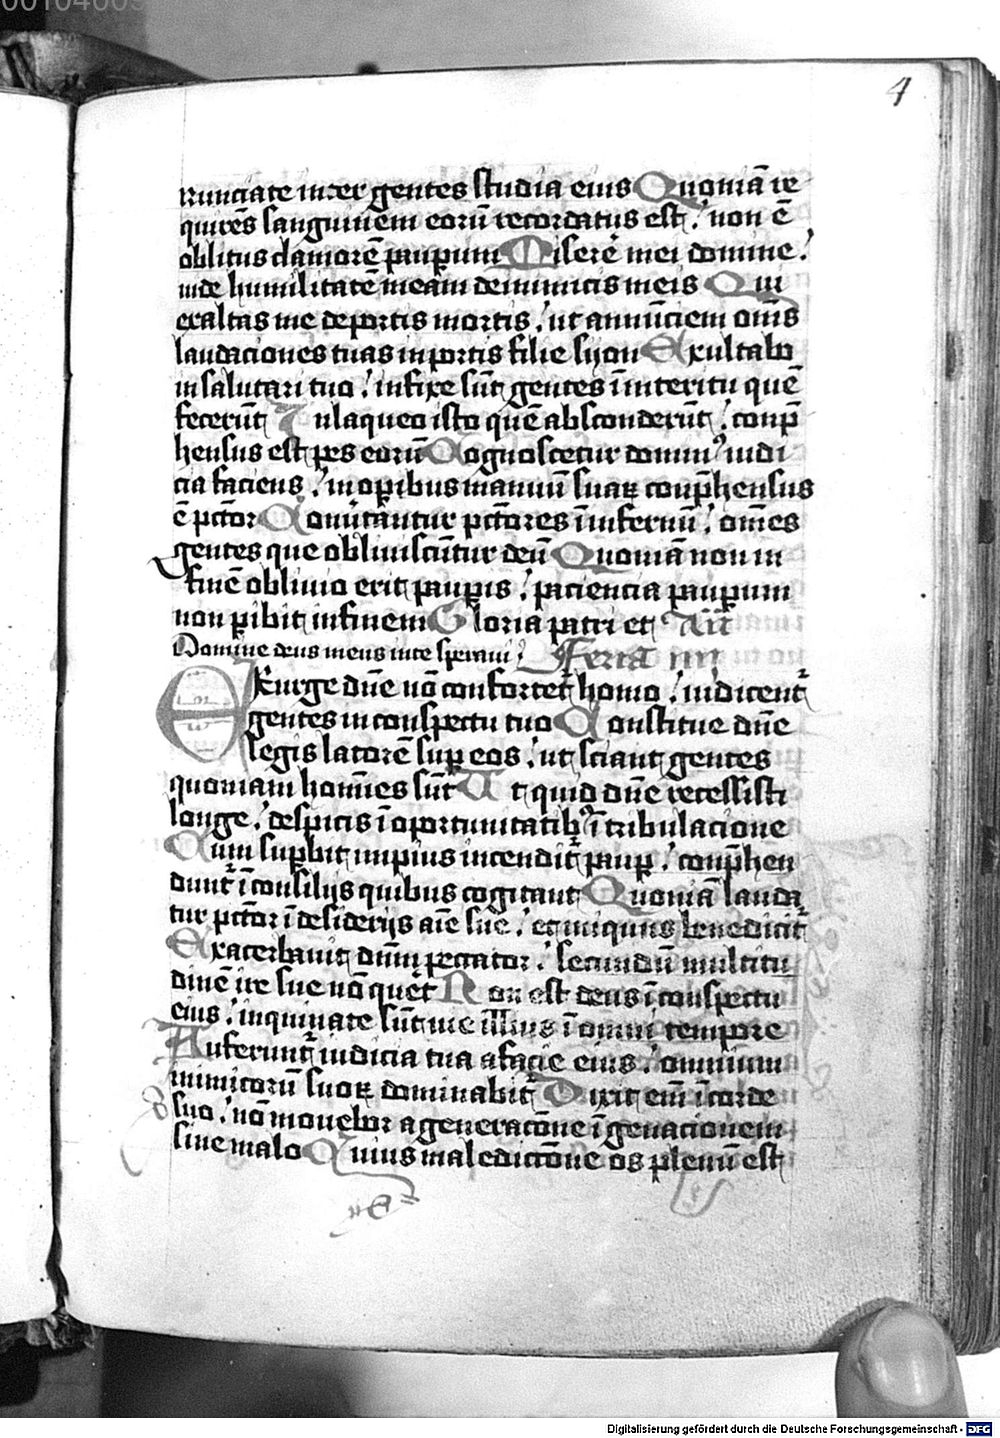 00104009
4
nunciate inter gentes studia eius Quoniā re
quirēs sanguinem eorū recordatus est / non ē
oblitus clamorē paup̲um Miserē mei domine /
vide humilitatē meam de inimicis meis Qui
exaltas me de portis mortis / ut annūciem om̄s
laudaciones tuas in portis filie syon Exultabo
in salutari tuo / infixe sūt gentes ī interitu quē
fecerūt In laqueo isto quē absconderūt / conp̄
hensus est pes eorū Cognoscetur domin⁹ iudi
cia faciens / in op̲ibus manuū suaꝝ conp̄hensus
ē pctōr Conūtantur pctōres ī infernū / om̄es
gentes que obliuiscūtur deū Quoniā non in
finē obliuio erit paup̲is / paciencia paup̲um
non p̲ibit in finem Gloria patri et Añ
Domine deus meus in te speraui / Feria iiii
Exurge dn̄e nō confortet̄ homo / iudicent̄
gentes in conspectu tuo Constitue dn̄e
legis latorē sup̲ eos / ut sciant gentes
quoniam homīes sūt Ut quid dn̄e recessisti
longe / despicis ī oportunitatib⁹ ī tribulacione
Dum sup̲bit impius incendit̄ paup̲ / conp̄hen
dunt̄ ī consilijs quibus cogitant Quoniā lauda
tur pctōr ī desiderijs aīe sue / et iniquus benedicit̄
Exacerbauit dn̄m peccator / secundū multitu
dinē ire sue nō quēt Non est deus ī conspectu
eius / inquinate sūt vie illius ī omni tempore
Auferunt̄ iudicia tua a facie eius / omnium
inimicorū suoꝝ dominabit̄ Dixit em̄ ī corde
suo / nō mouebor a generacōne ī geñacionem
sine malo Cuius maledictōne os plenū est
Digitalisierung gefördert durch die Deutsche Forschungsgemeinschaft - DFG